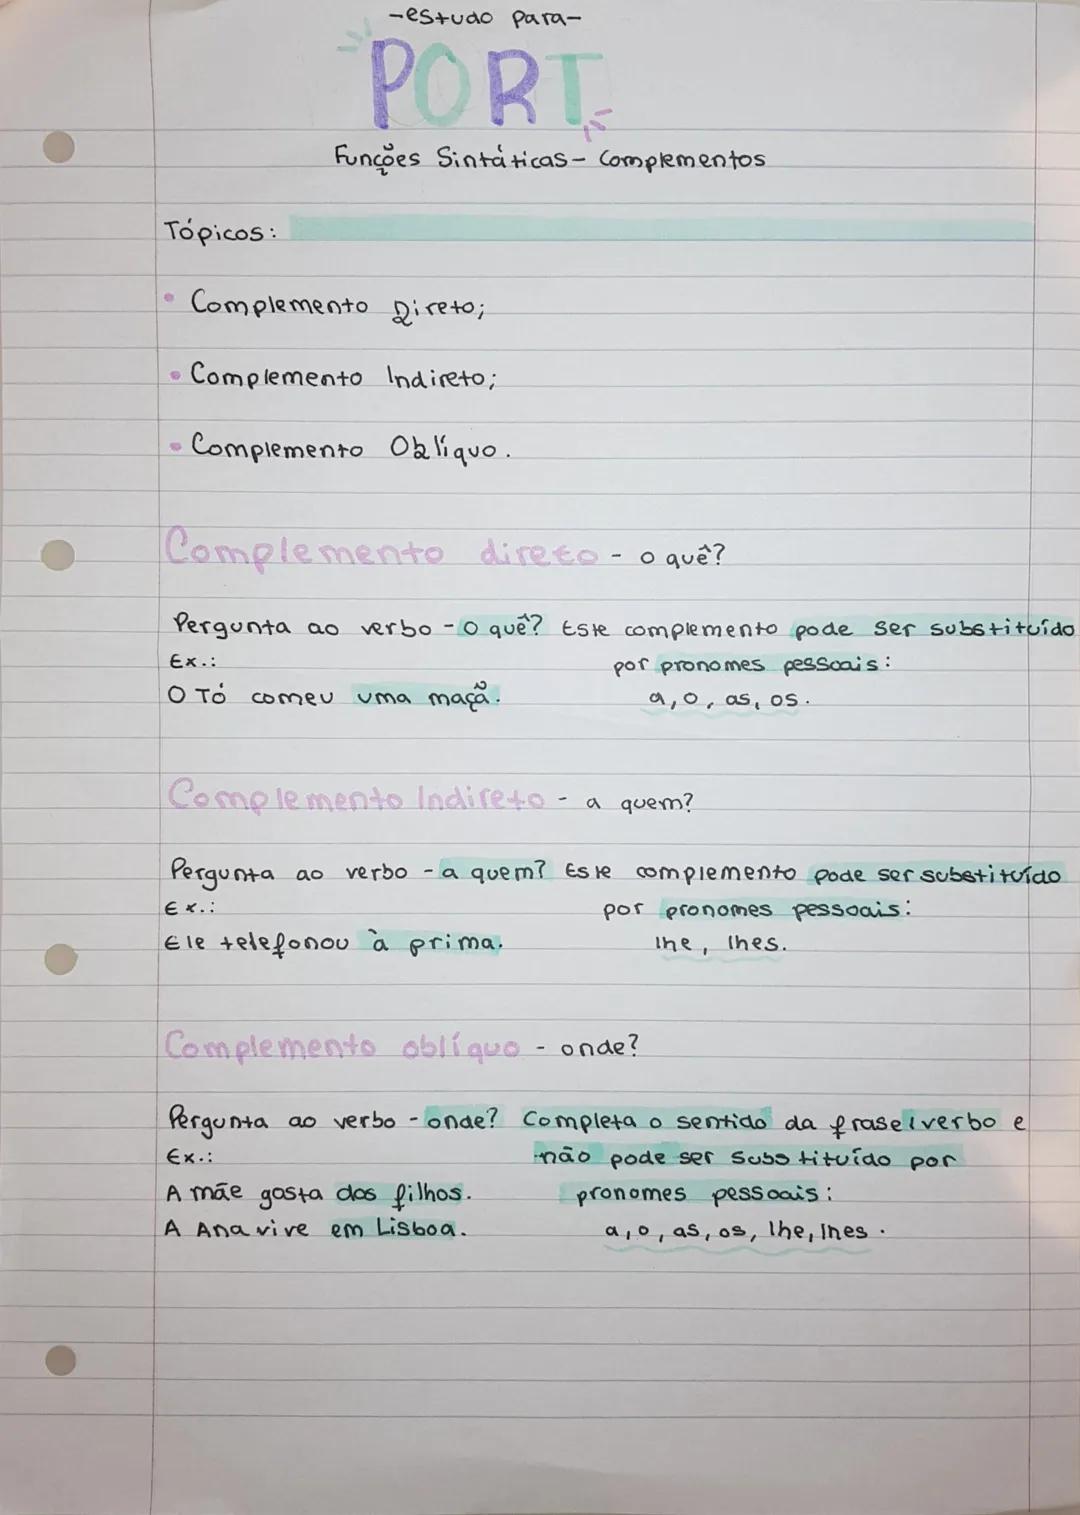 -estudo para-
PORT
Funções Sintáticas - Complementos
Tópicos:
• Complemento Direto;
• Complemento Indireto;
• Complemento Oblíquo.
Complemento direto - o quê?
Pergunta ao verbo - o quê? Este complemento pode ser substituído
Ex.: por pronomes pessoais:
O Tó comeu uma maçã. a, o, as, os.
Complemento Indireto - a quem?
Pergunta ao verbo - a quem? Este complemento pode ser substituído
Ex.: por pronomes pessoais:
Ele telefonou à prima. lhe, lhes.
Complemento oblíquo - onde?
Pergunta ao verbo - onde? Completa o sentido da frase/verbo e
Ex.: não pode ser substituído por
A mãe gosta dos filhos. pronomes pessoais:
A Ana vive em Lisboa. a, o, as, os, lhe, lhes.